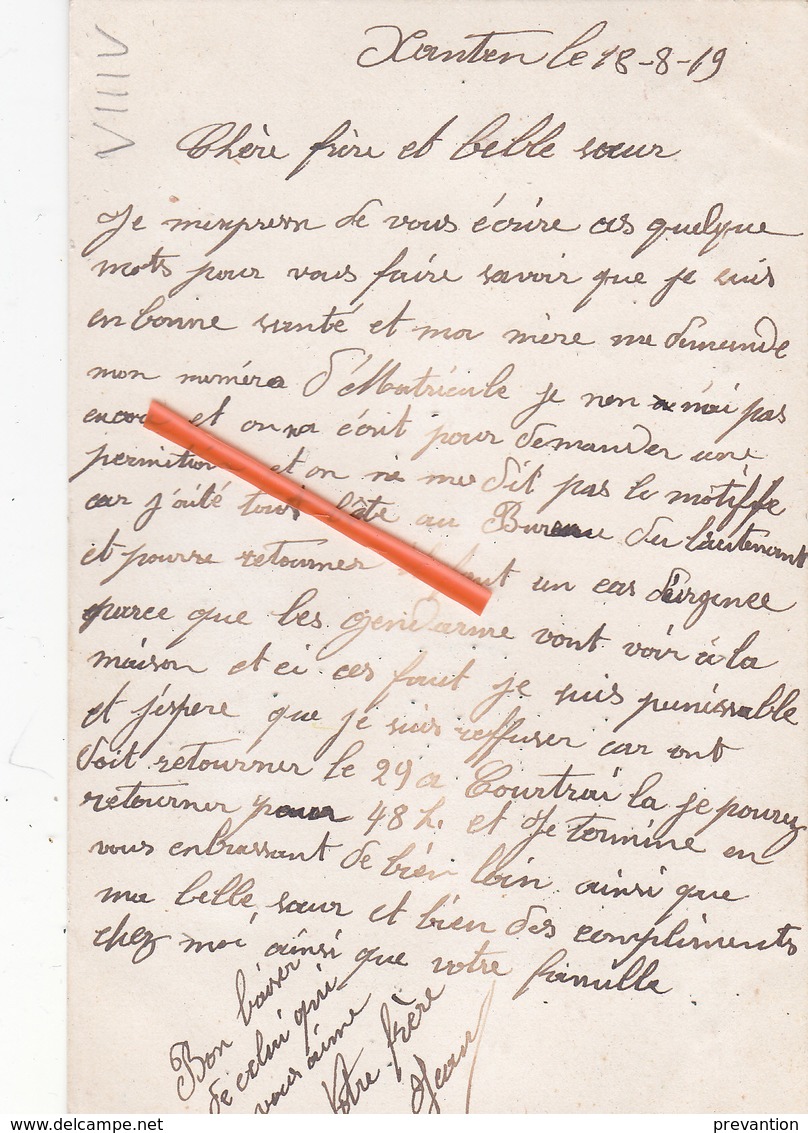 VIIIV
Xanten le 18-8-19
Chère frère et belle sœur
Je mempresn de vous écrire ces quelque
mots pour vous faire savoir que je suis
en bonne santé et moi mère me demande
mon numéro d'Matricule je nen n'ai pas
encore et on m'a écrit pour demander une
permition et on ne me dit pas le motiffe
car j'aité tous l'été au Bureau du lieutenant
et pourre retourner il faut un cas d'urgence
parce que les gendarme vont voir à la
maison et ci ces faut je suis punissable
et j'espere que je suis reffuser car ont
doit retourner le 29 a Courtrai la je pourez
retourner pour 48 h. et Je termine en
vous enbrassant de bien loin ainsi que
ma belle sœur et bien des compliments
chez moi, ainsi que votre famille
Bon baiser
de celui qui
vous aime
Votre frère
Jean
prevantion